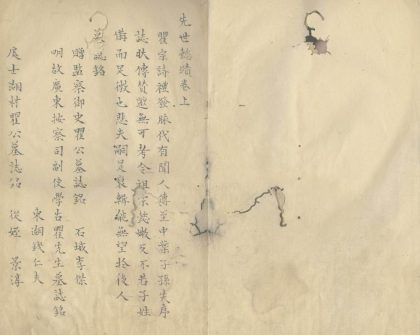 先世懿蹟卷上
瞿宗詩禮發脉代有聞人傳至中葉子孫失序
誌狀傳贊蕩無可考令祖宗懿徽反不若子姓
備而足徵也悲夫嗣是裒輯能無望於後人
墓誌銘
贈監察御史瞿公墓誌銘 石城李傑
明故廣東按察司副使學古瞿先生墓誌銘
東湖錢仁夫
處士湖村瞿公墓誌銘 從姪景淳